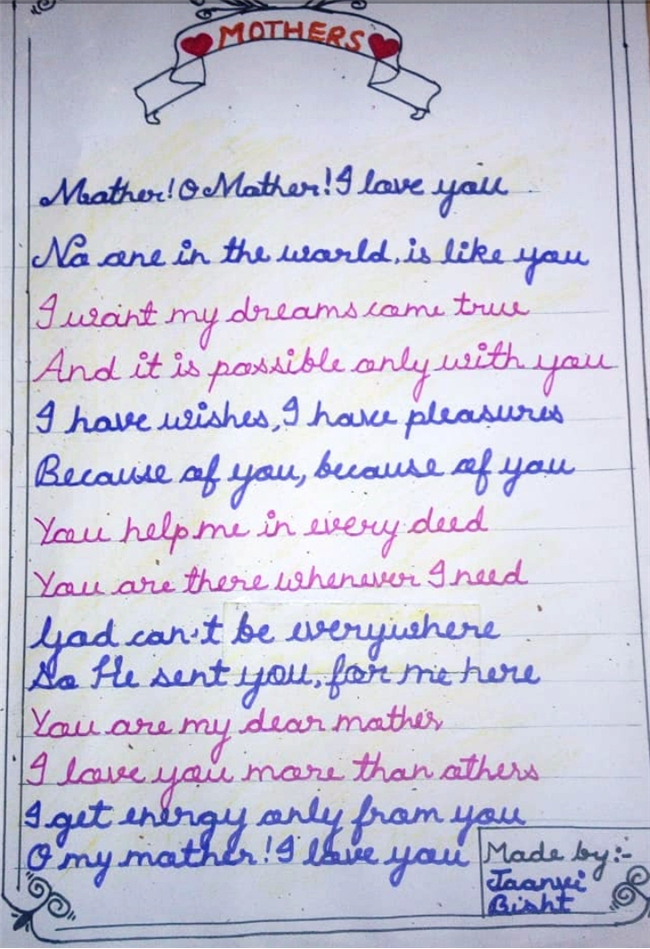 MOTHERS
Mother! O Mother! I love you
No one in the world, is like you
I want my dreams come true
And it is possible only with you
I have wishes, I have pleasures
Because of you, because of you
You help me in every deed
You are there whenever I need
God can't be everywhere
So He sent you, for me here
You are my dear mother
I love you more than others
I get energy only from you
O my mother! I love you
Made by:-
Jaanvi
Bisht